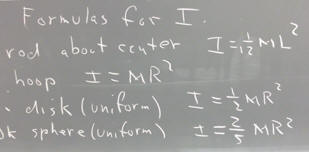 Formulas for I.
rod about center I = 1/12 ML²
hoop I = MR²
disk (uniform) I = 1/2 MR²
sphere (uniform) I = 2/5 MR²